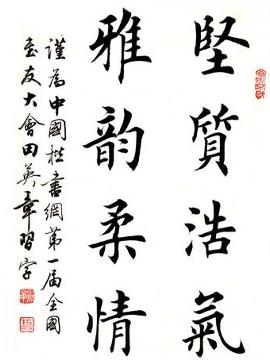 堅質浩氣
雅韵柔情
謹為中國楷書網第一屆全國
書友大會田英章習字